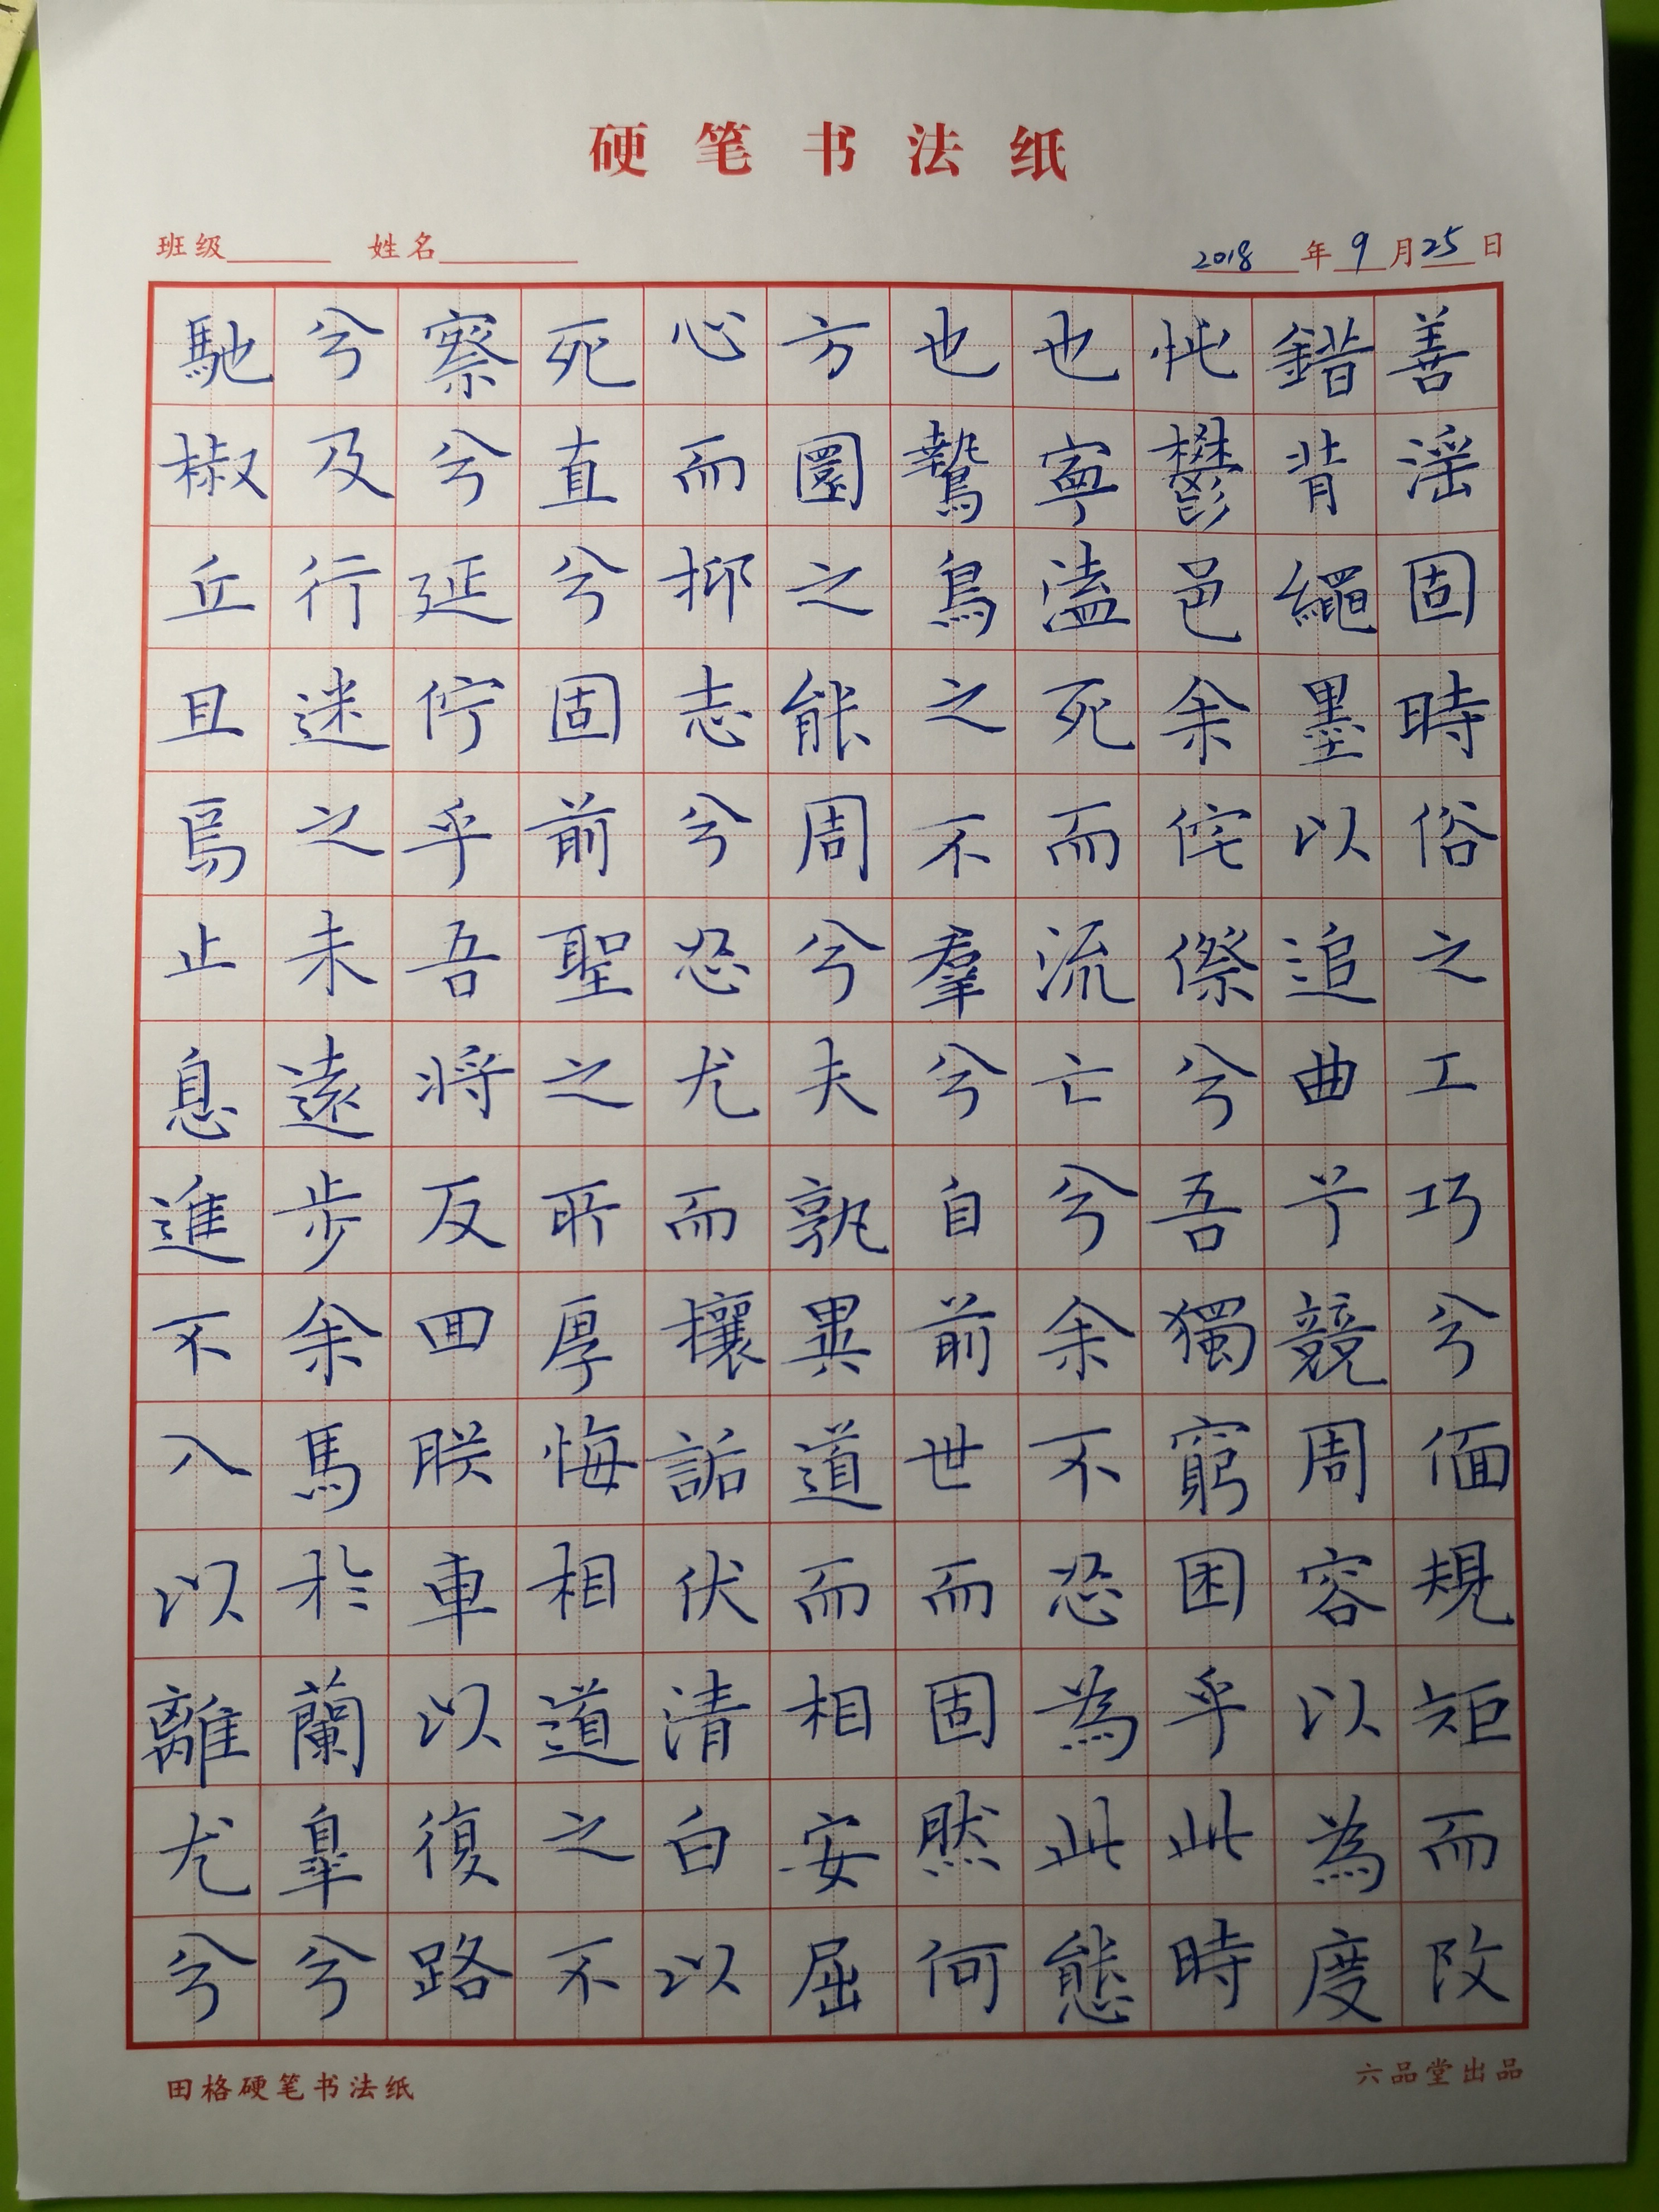 硬笔书法纸
班级 姓名 2018年9月25日
善淫固時俗之工巧兮偭規矩而改
錯背繩墨以追曲兮競周容以為度
忳鬱邑余侘傺兮吾獨窮困乎此時
也寧溘死而流亡兮余不忍為此態
也鷙鳥之不羣兮自前世而固然何
方圜之能周兮夫孰異道而相安屈
心而抑志兮忍尤而攘詬伏清白以
死直兮固前聖之所厚悔相道之不
察兮延佇乎吾將反回朕車以復路
兮及行迷之未遠步余馬於蘭皋兮
馳椒丘且焉止息進不入以離尤兮
田格硬笔书法纸
六品堂出品